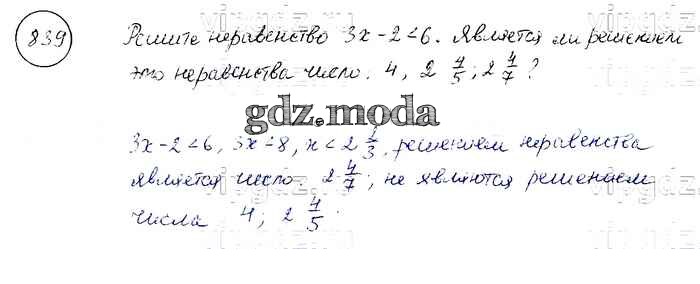 839 Решите неравенство 3x - 2 < 6. Является ли решением
это неравенства число. 4, 2 4/5; 2 4/7 ?
gdz.moda
3x - 2 < 6, 3x < 8, x < 2 2/3, решением неравенства
является число. 2 4/7; не являются решением
числа 4; 2 4/5.